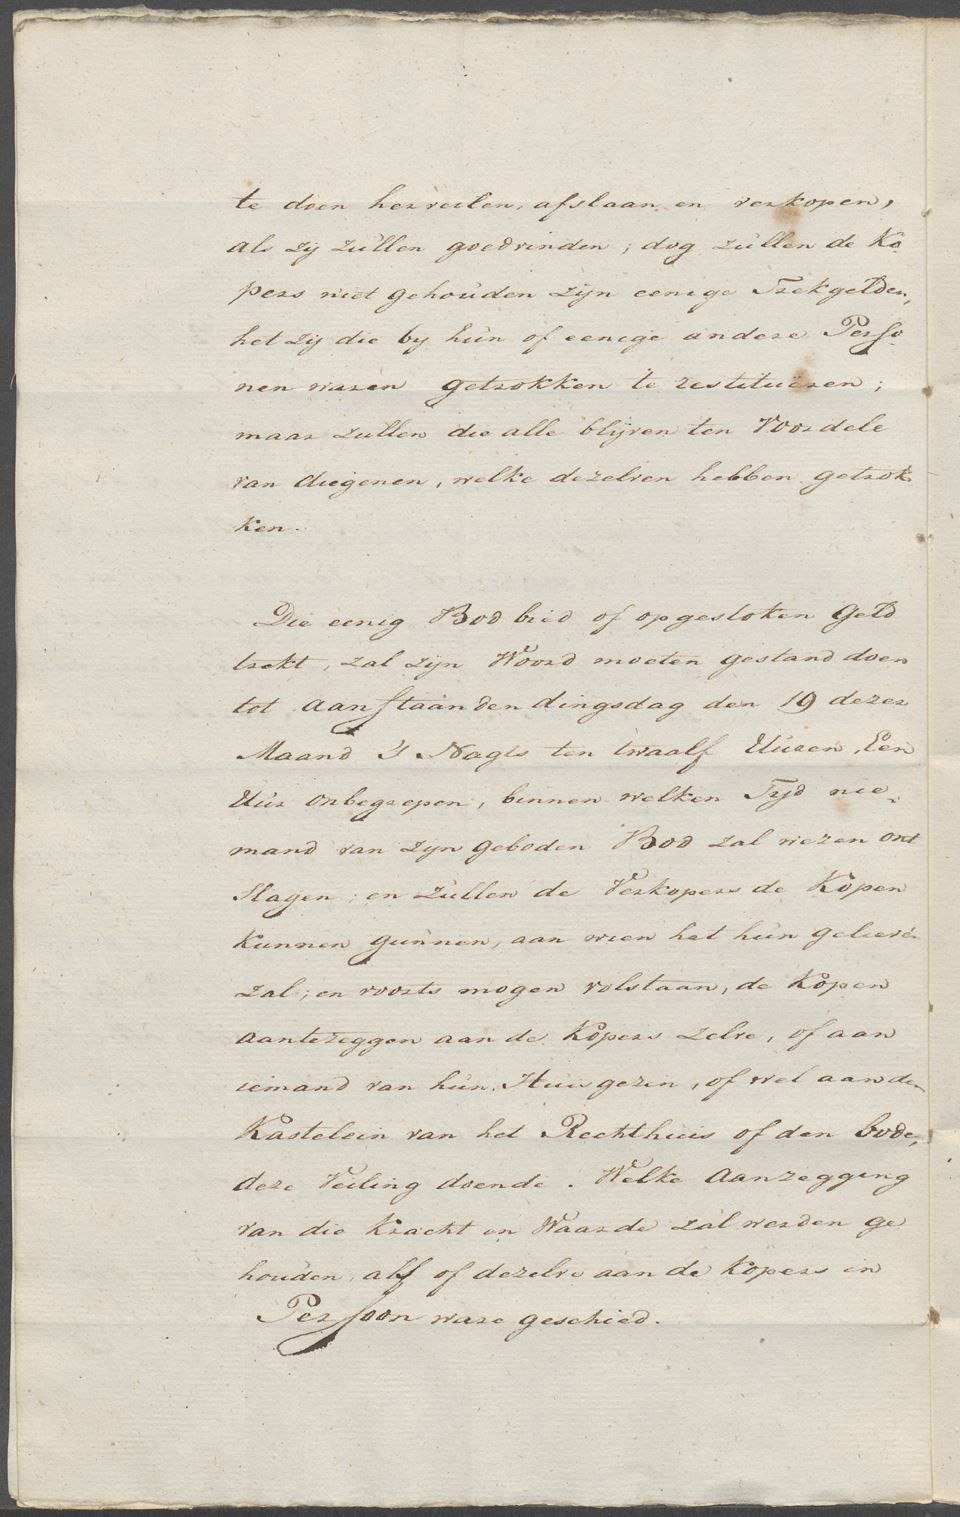 te doen herveilen, afslaan en verkopen,
als zy zullen goedvinden; dog zullen de Ko
pers niet gehouden zyn eenige Trekgelden,
het zij die by hun of eenige andere Perso
nen waren getrokken te restitueren;
maar zullen die alle blijven ten Voordele
van diegenen, welke dezelven hebben getrok
ken.
Die eenig Bod bied of opgesloten Geld
trekt, zal zijn Woord moeten gestand doen
tot aanstaanden dingsdag den 19 dezer
Maand 's Nagts ten twaalf Uuren, Een
Uur onbegrepen, binnen welken Tyd nie
mand van zyn geboden Bod zal wezen ont
slagen; en zullen de Verkopers de Kopen
kunnen gunnen, aan wien het hun gelieve
zal; en voorts mogen volstaan, de Kopen
aantezeggen aan de Kopers zelve, of aan
iemand van hun Huisgezin, of wel aan den
Kastelein van het Rechthuis of den bode,
deze Veiling doende. Welke aanzegging
van die Kracht en Waarde zal werden ge
houden, alf of dezelve aan de Kopers in
Persoon ware geschied.